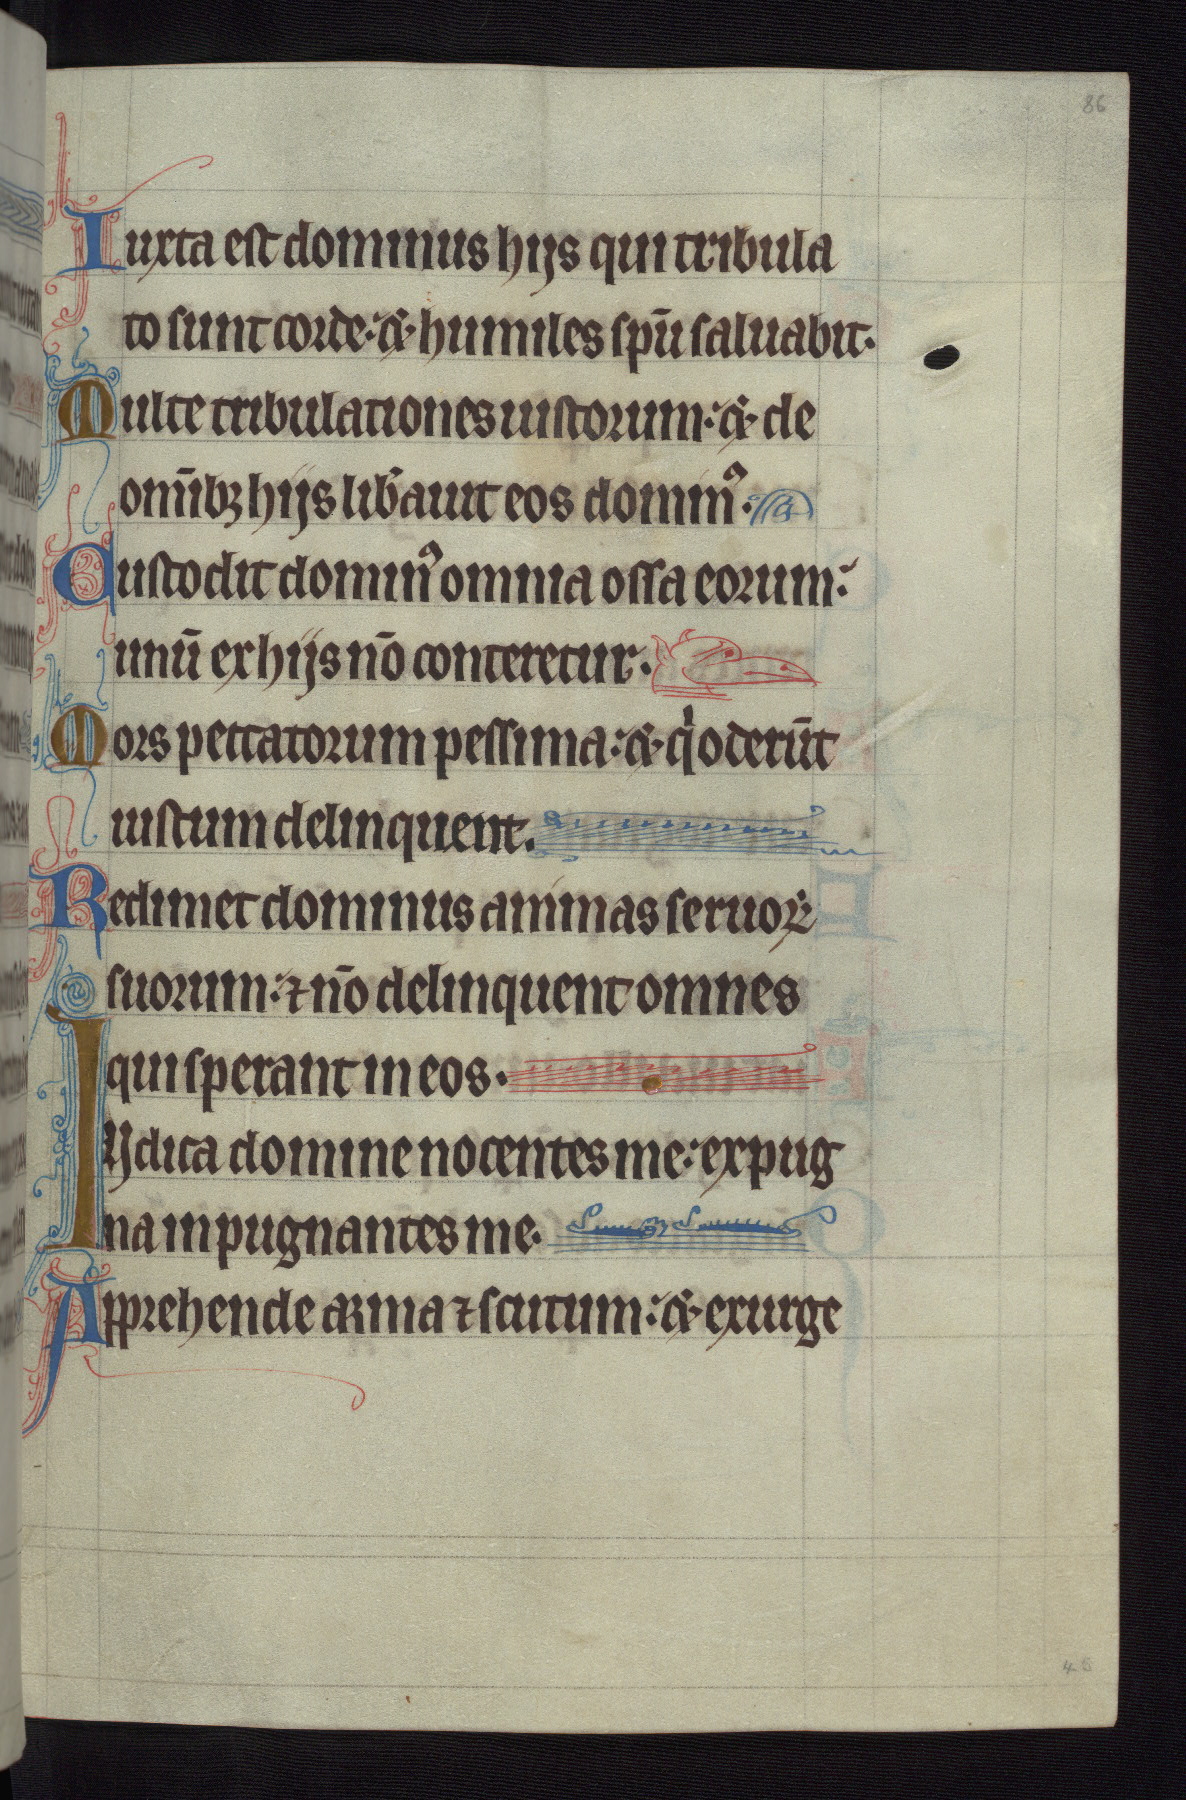 86
Iuxta est dominus hijs qui tribula
to sunt corde: & humiles spū saluabit.
Multe tribulationes iustorum: & de
om̄ibꝫ hijs lib̄auit eos dominꝰ.
Custodit dominꝰ omnia ossa eorum:
unū ex hijs nō conteretur.
Mors peccatorum pessima: & qͥ oderūt
iustum delinquent.
Redimet dominus animas seruoꝝ
suorum: ⁊ nō delinquent omnes
qui sperant in eos.
IVdica domine nocentes me: expug
na inpugnantes me.
Apprehende arma ⁊ scutum: & exurge